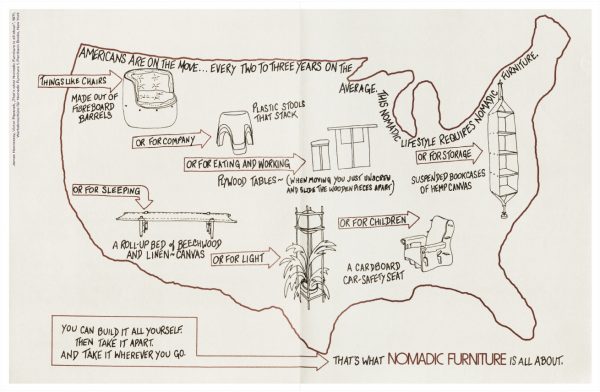 AMERICANS ARE ON THE MOVE... EVERY TWO TO THREE YEARS ON THE AVERAGE. THIS NOMADIC LIFESTYLE REQUIRES NOMADIC FURNITURE.
THINGS LIKE CHAIRS
MADE OUT OF
FIBREBOARD
BARRELS
OR FOR COMPANY
PLASTIC STOOLS
THAT STACK
OR FOR EATING AND WORKING
PLYWOOD TABLES~(WHEN MOVING YOU JUST UNSCREW
AND SLIDE THE WOODEN PIECES APART)
OR FOR STORAGE
SUSPENDED BOOKCASES
OF HEMP CANVAS
OR FOR SLEEPING
A ROLL-UP BED OF BEECHWOOD
AND LINEN~CANVAS
OR FOR LIGHT
OR FOR CHILDREN
A CARDBOARD
CAR-SAFETY SEAT
YOU CAN BUILD IT ALL YOURSELF.
THEN TAKE IT APART.
AND TAKE IT WHEREVER YOU GO.
THAT'S WHAT NOMADIC FURNITURE IS ALL ABOUT.